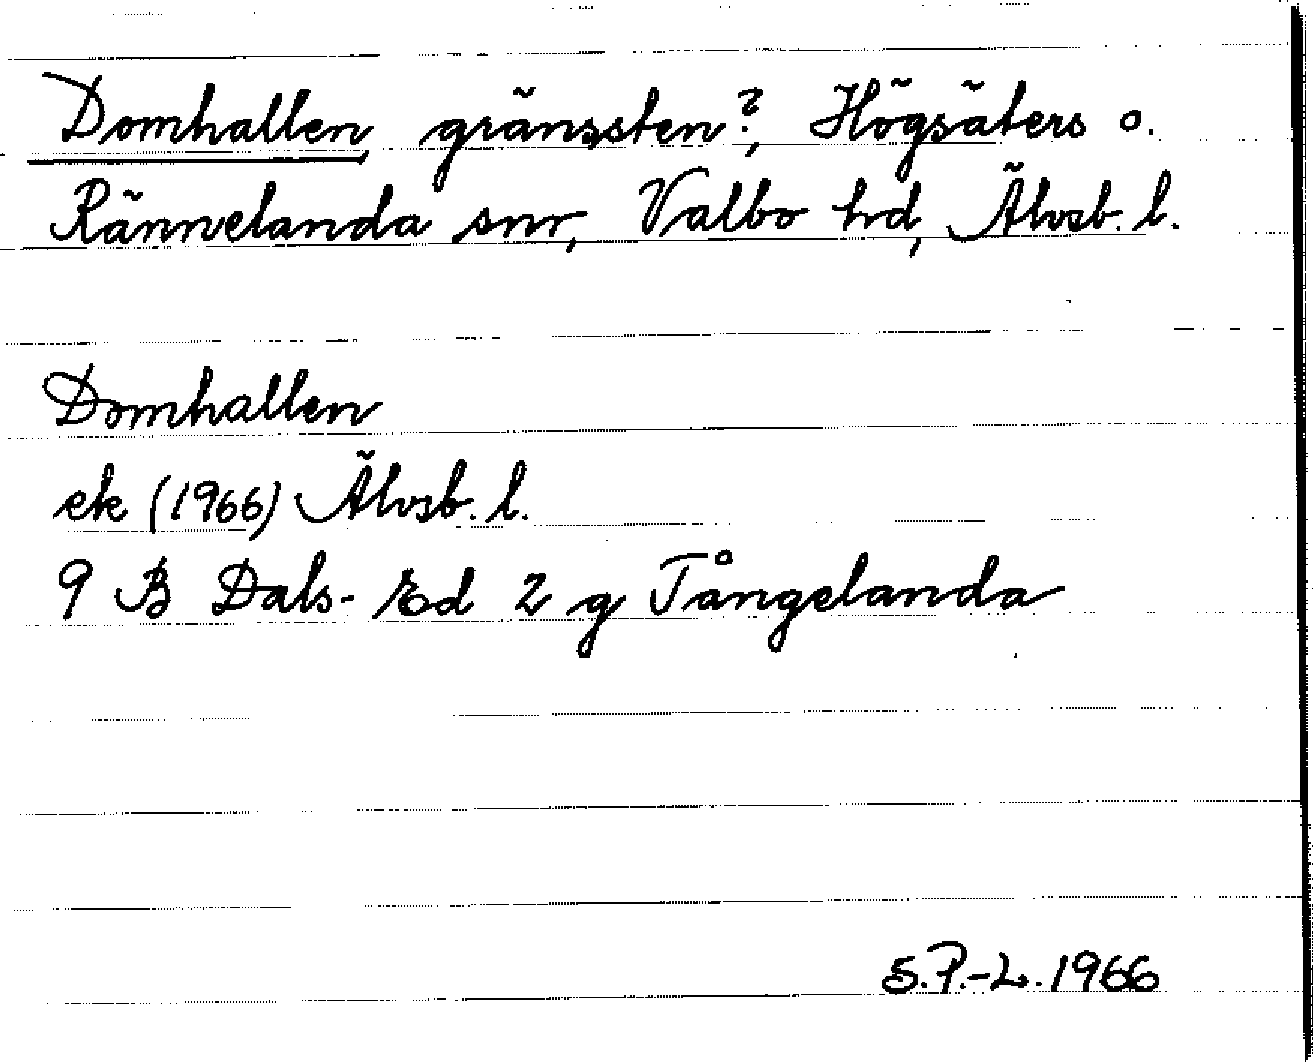 Domhallen gränssten?, Högsäters o.
Rännelanda snr, Valbo hd, Älvsb. l.
Domhallen
ek (1966) Älvsb. l.
9 B Dals-Ed 2 g Tångelanda
S.P.-L. 1966